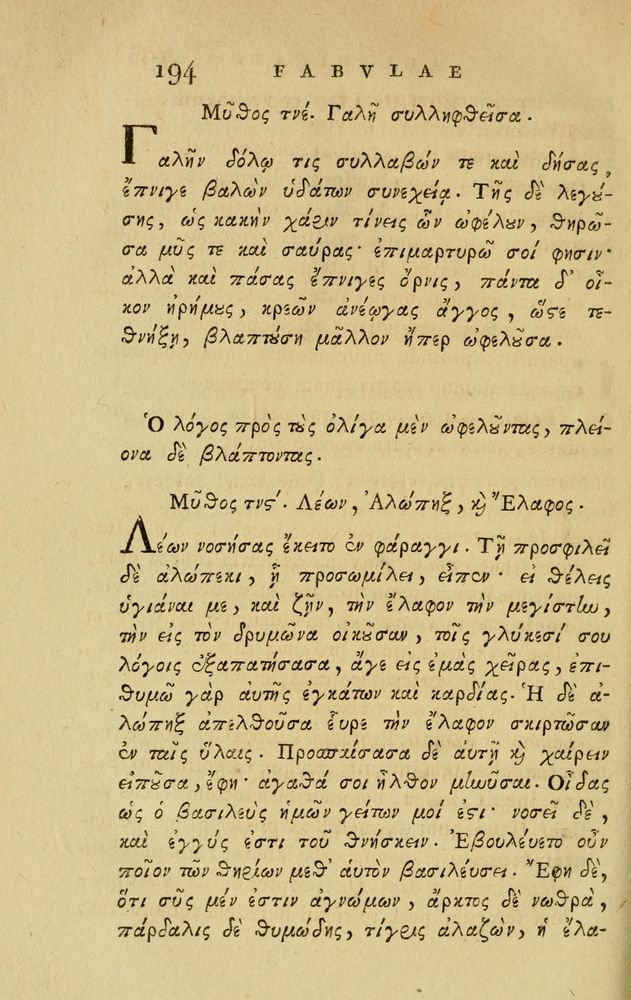 194 FABVLAE
Μῦθος τνέ. Γαλῆ συλληφθεῖσα.
Γαλῆν δόλῳ τις συλλαβών τε καὶ δήσας,
ἔπνιγε βαλὼν ὑδάτων συνεχείᾳ. Τῆς δὲ λεγού-
σης, ὡς κακὴν χάριν τίνεις ὧν ὠφέλουν, θηρῶ-
σα μῦς τε καὶ σαύρας· ἐπιμαρτυρῶ σοί φησιν·
ἀλλὰ καὶ πάσας ἔπνιγες ὄρνις, πάντα δ' οἶ-
κον ἠρήμους, κρεῶν ἀνέῳγας ἄγγος, ὥστε τε-
θνήξῃ, βλαπτούσῃ μᾶλλον ἤπερ ὠφελοῦσα.
Ὁ λόγος πρὸς τοὺς ὀλίγα μὲν ὠφελοῦντας, πλεί-
ονα δὲ βλάπτοντας.
Μῦθος τνϛ΄. Λέων, Ἀλώπηξ, καὶ Ἔλαφος.
Λέων νοσήσας ἔκειτο ἐν φάραγγι. Τῇ προσφιλεῖ
δὲ ἀλώπεκι, ᾗ προσωμίλει, εἶπεν· εἰ θέλεις
ὑγιάναι με, καὶ ζῇν, τὴν ἔλαφον τὴν μεγίστην,
τὴν εἰς τὸν δρυμῶνα οἰκοῦσαν, τοῖς γλύκεσί σου
λόγοις ἐξαπατήσασα, ἄγε εἰς ἐμὰς χεῖρας, ἐπι-
θυμῶ γάρ αὐτῆς ἐγκάτων καὶ καρδίας. Ἡ δὲ ἀ-
λώπηξ ἀπελθοῦσα εὗρε τὴν ἔλαφον σκιρτῶσαν
ἐν ταῖς ὕλαις. Προσπαίσασα δὲ αὐτῇ καὶ χαίρειν
εἰποῦσα, ἔφη· ἀγαθά σοι ἦλθον μηνῦσαι. Οἶδας
ὡς ὁ βασιλεὺς ἡμῶν γείτων μοί ἐστι· νοσεῖ δὲ,
καὶ ἐγγύς ἐστι τοῦ θνήσκειν. Ἐβουλεύετο οὖν
ποῖον τῶν θηρίων μεθ' αὑτὸν βασιλεύσει. Ἔφη δὲ,
ὅτι σῦς μέν ἐστιν ἀγνώμων, ἄρκτος δὲ νωθρὰ,
πάρδαλις δὲ θυμώδης, τίγρις ἀλαζών, ἡ ἔλα-